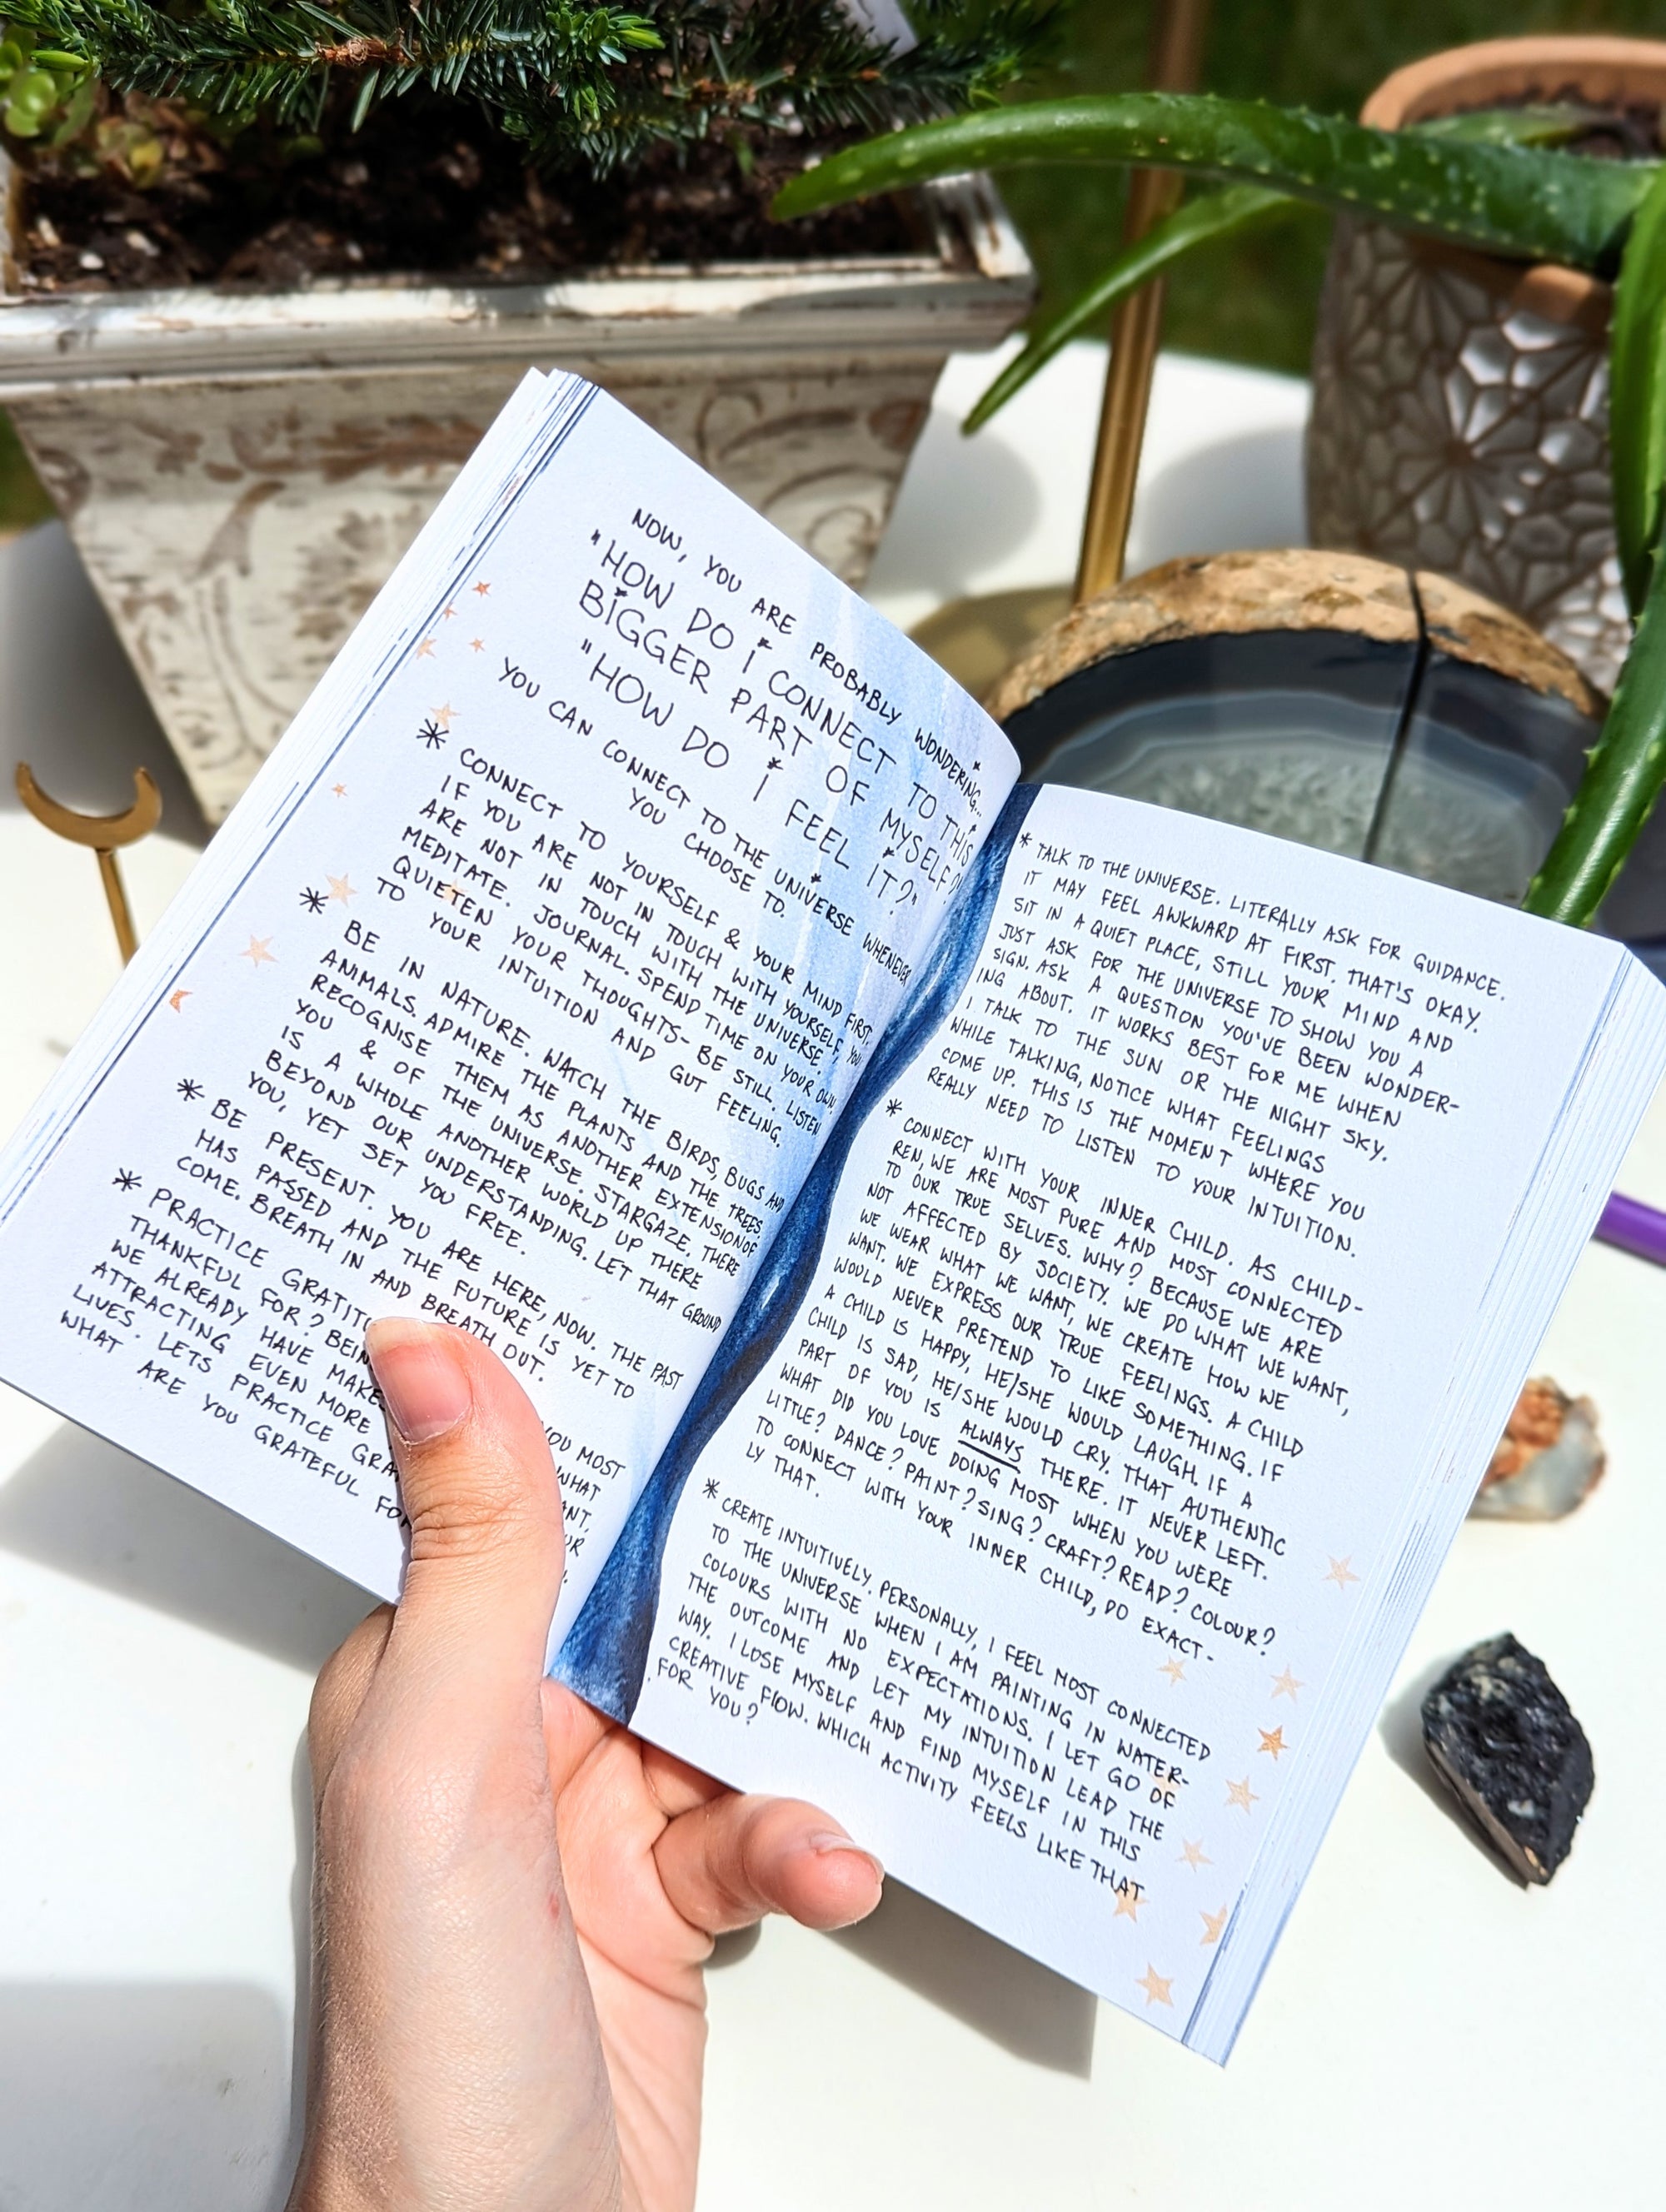 NOW, YOU ARE PROBABLY WONDERING...
"HOW DO I CONNECT TO THIS
BIGGER PART OF MYSELF?"
"HOW DO I FEEL IT?"
YOU CAN CONNECT TO THE UNIVERSE WHENEVER
YOU CHOOSE TO.
* CONNECT TO YOURSELF & YOUR MIND FIRST.
IF YOU ARE NOT IN TOUCH WITH YOURSELF, YOU
ARE NOT IN TOUCH WITH THE UNIVERSE.
MEDITATE. JOURNAL. SPEND TIME ON YOUR OWN.
QUIETEN YOUR THOUGHTS - BE STILL. LISTEN
TO YOUR INTUITION AND GUT FEELING.
* BE IN NATURE. WATCH THE BIRDS, BUGS AND
ANIMALS. ADMIRE THE PLANTS AND THE TREES.
RECOGNISE THEM AS ANOTHER EXTENSION OF
YOU & OF THE UNIVERSE. STARGAZE. THERE
IS A WHOLE ANOTHER WORLD UP THERE
BEYOND OUR UNDERSTANDING. LET THAT GROUND
YOU, YET SET YOU FREE.
* BE PRESENT. YOU ARE HERE, NOW. THE PAST
HAS PASSED AND THE FUTURE IS YET TO
COME. BREATH IN AND BREATH OUT.
* PRACTICE GRATITU YOU MOST
THANKFUL FOR? BEIN WHAT
WE ALREADY HAVE MAKE ANT,
ATTRACTING EVEN MORE UR
LIVES. LETS PRACTICE GRA
WHAT ARE YOU GRATEFUL FOR
* TALK TO THE UNIVERSE. LITERALLY ASK FOR GUIDANCE.
IT MAY FEEL AWKWARD AT FIRST. THAT'S OKAY.
SIT IN A QUIET PLACE, STILL YOUR MIND AND
JUST ASK FOR THE UNIVERSE TO SHOW YOU A
SIGN. ASK A QUESTION YOU'VE BEEN WONDER-
ING ABOUT. IT WORKS BEST FOR ME WHEN
I TALK TO THE SUN OR THE NIGHT SKY.
WHILE TALKING, NOTICE WHAT FEELINGS
COME UP. THIS IS THE MOMENT WHERE YOU
REALLY NEED TO LISTEN TO YOUR INTUITION.
* CONNECT WITH YOUR INNER CHILD. AS CHILD-
REN, WE ARE MOST PURE AND MOST CONNECTED
TO OUR TRUE SELVES. WHY? BECAUSE WE ARE
NOT AFFECTED BY SOCIETY. WE DO WHAT WE WANT,
WE WEAR WHAT WE WANT, WE CREATE HOW WE
WANT. WE EXPRESS OUR TRUE FEELINGS. A CHILD
WOULD NEVER PRETEND TO LIKE SOMETHING. IF
A CHILD IS HAPPY, HE/SHE WOULD LAUGH. IF A
CHILD IS SAD, HE/SHE WOULD CRY. THAT AUTHENTIC
PART OF YOU IS ALWAYS THERE. IT NEVER LEFT.
WHAT DID YOU LOVE DOING MOST WHEN YOU WERE
LITTLE? DANCE? PAINT? SING? CRAFT? READ? COLOUR?
TO CONNECT WITH YOUR INNER CHILD, DO EXACT-
LY THAT.
* CREATE INTUITIVELY. PERSONALLY, I FEEL MOST CONNECTED
TO THE UNIVERSE WHEN I AM PAINTING IN WATER-
COLOURS WITH NO EXPECTATIONS. I LET GO OF
THE OUTCOME AND LET MY INTUITION LEAD THE
WAY. I LOSE MYSELF AND FIND MYSELF IN THIS
CREATIVE FLOW. WHICH ACTIVITY FEELS LIKE THAT
FOR YOU?